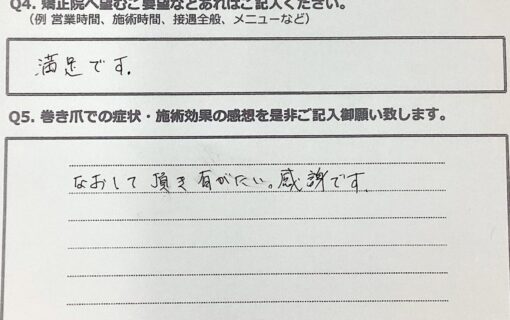 Q4. 矯正院へ望むご要望などあればご記入ください。
（例 営業時間、施術時間、接遇全般、メニューなど）
満足です.
Q5. 巻き爪での症状・施術効果の感想を是非ご記入御願い致します。
なおして頂き有がたい。感謝です.